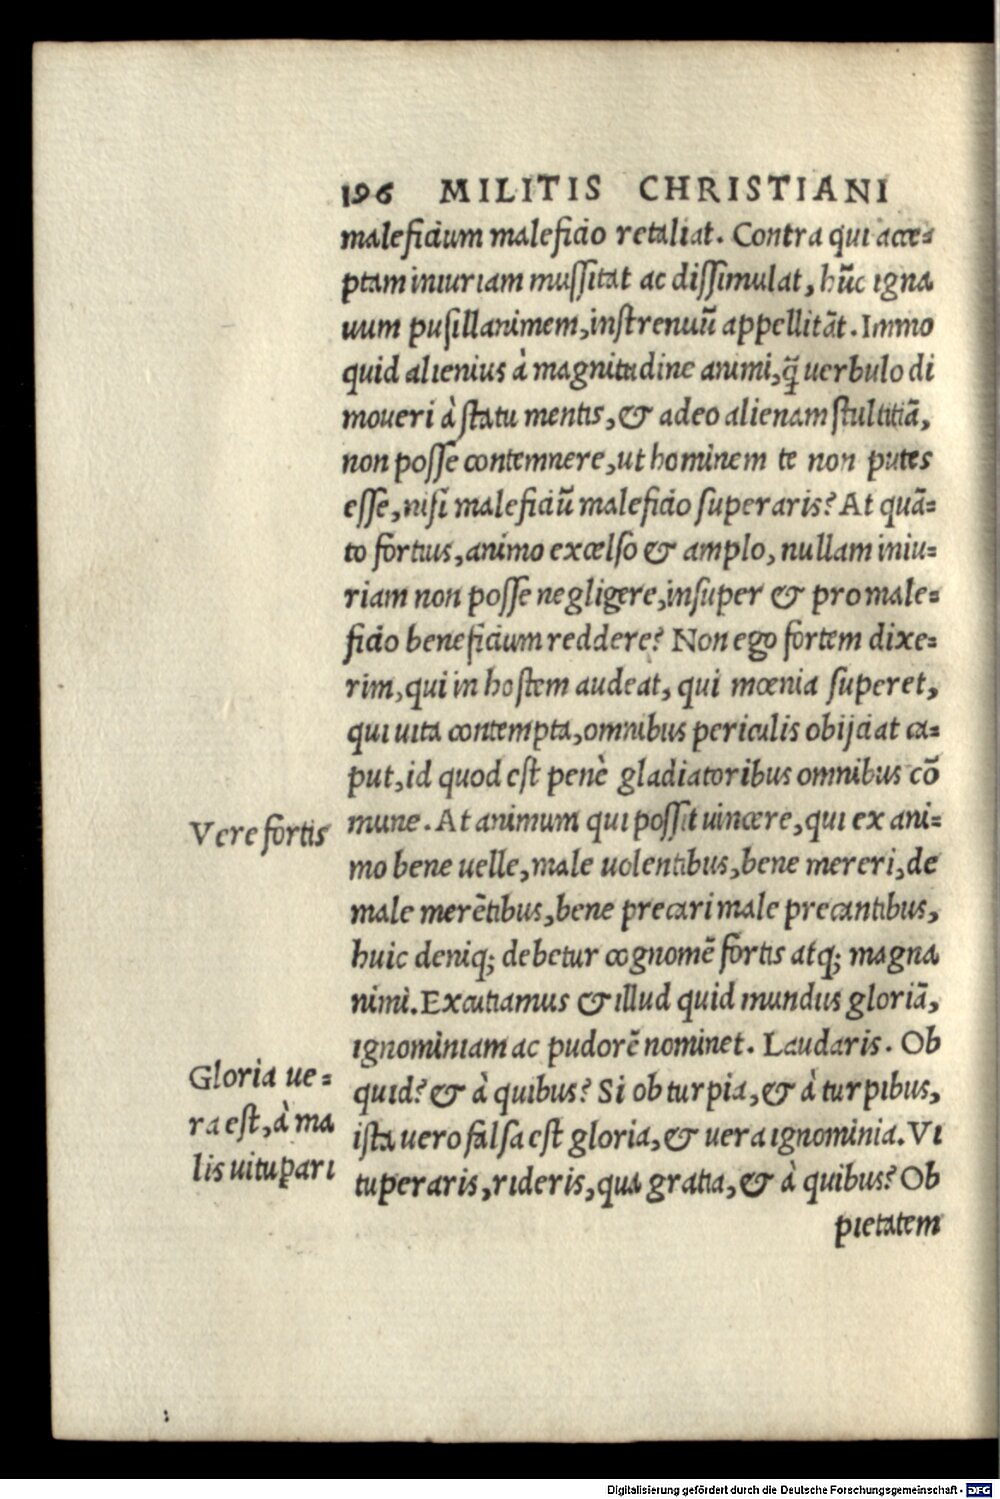 196 MILITIS CHRISTIANI
maleficium maleficio retaliat. Contra qui acce⸗
ptam iniuriam mussitat ac dissimulat, hūc igna
uum pusillanimem, instrenuū appellitāt. Immo
quid alienius à magnitudine animi, q̄ uerbulo di
moueri à statu mentis, & adeo alienam stultitiā,
non posse contemnere, ut hominem te non putes
esse, nisi maleficiū maleficio superaris? At quā⸗
to fortius, animo excelso & amplo, nullam iniu⸗
riam non posse negligere, insuper & pro male⸗
ficio beneficium reddere? Non ego fortem dixe⸗
rim, qui in hostem audeat, qui mœnia superet,
qui uita contempta, omnibus periculis obijciat ca⸗
put, id quod est penè gladiatoribus omnibus cō
mune. At animum qui possit uincere, qui ex ani⸗
mo bene uelle, male uolentibus, bene mereri, de
male merētibus, bene precari male precantibus,
huic deniq; debetur cognomē fortis atq; magna
nimi. Excutiamus & illud quid mundus gloriā,
ignominiam ac pudorē nominet. Laudaris. Ob
quid? & à quibus? Si ob turpia, & à turpibus,
ista uero falsa est gloria, & uera ignominia. Vi
tuperaris, rideris, qua gratia, & à quibus? Ob
pietatem
Vere fortis
Gloria ue⸗
ra est, à ma
lis uitupari
Digitalisierung gefördert durch die Deutsche Forschungsgemeinschaft - DFG